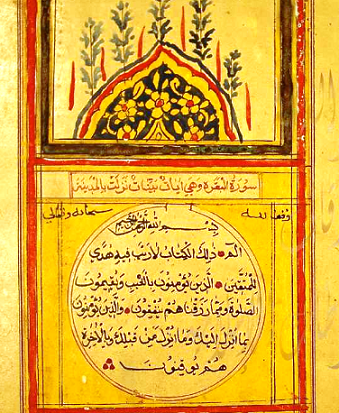 سورة البقرة وهي ايات بينات نزلت بالمدينة
وقف لله سبحانه وتعالى
بسم الله الرحمن الرحيم
الم ذلك الكتاب لاريب فيه هدى
للمتقين الذين يؤمنون بالغيب ويقيمون
الصلوة ومما رزقناهم ينفقون والذين يؤمنون
بما انزل اليك وما انزل من قبلك وبالاخرة
هم يوقنون